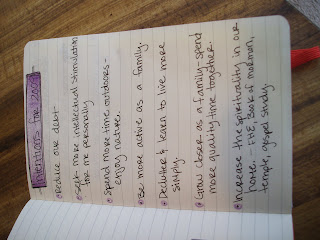 Intentions for 2009
• Reduce our debt -
• Seek more intellectual stimulation
for me personally
• Spend more time outdoors -
enjoy nature.
• Be more active as a family.
• Declutter & learn to live more
simply.
• Grow closer as a family - spend
more quality time together
• Increase the spirituality in our
home. - FHE, Book of Mormon,
temple, gospel study.